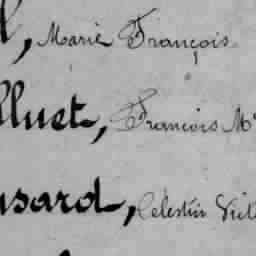 l, Marie François
lluet, François M
usard, Célestin Vict